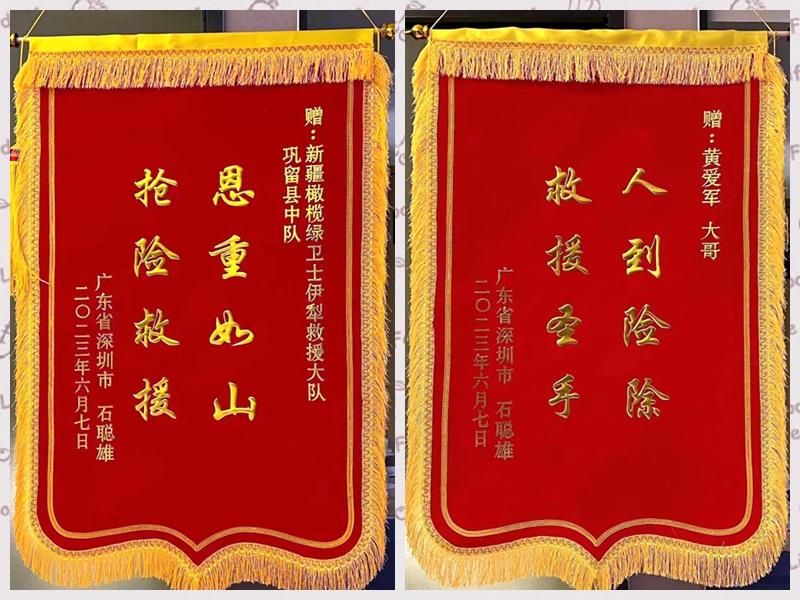 赠：新疆橄榄绿卫士伊犁救援大队
巩留县中队
恩重如山
抢险救援
广东省深圳市 石聪雄
二〇二三年六月七日
赠：黄爱军 大哥
人到险除
救援圣手
广东省深圳市 石聪雄
二〇二三年六月七日